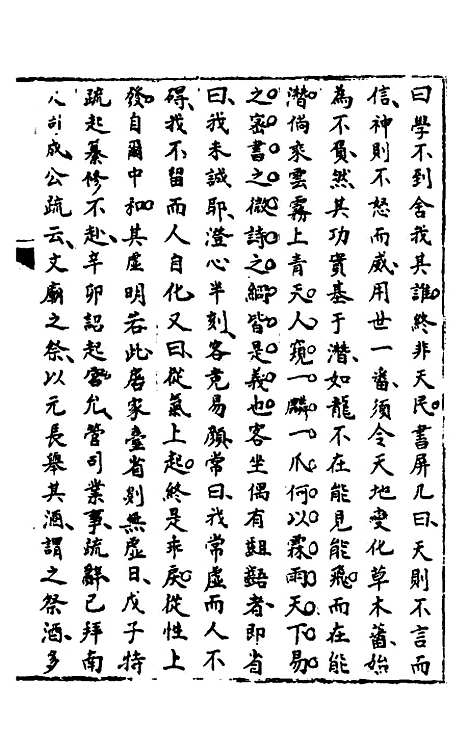 曰學不到舍我其誰終非天民書屏几曰天則不言而
信神則不怒而威用世一番須令天地變化草木蕃始
為不負然其功實基于潛如龍不在能見能飛而在能
潛倘來雲霧上青天人窺一鱗一爪何以霖雨天下易
之密書之微詩之絅皆是義也客坐偶有齟齬者即省
曰我未誠耶澄心半刻客竟易顏常曰我常虛而人不
碍我不留而人自化又曰從氣上起終是乖戾從性上
發自爾中和其虛明若此居家臺省剡無虛日戊子特
疏起纂修不赴辛卯詔起宮允管司業事疏辭已拜南
成公疏云文廟之祭以元長舉其酒謂之祭酒多